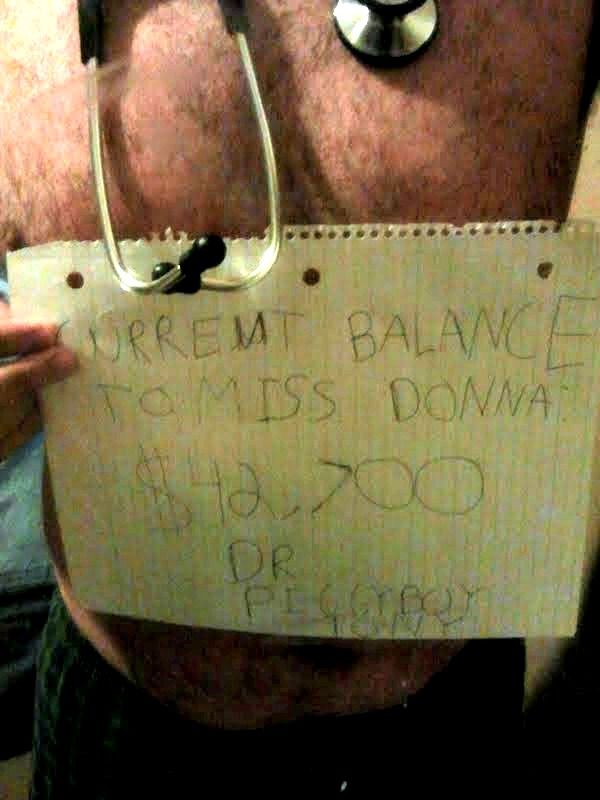 CURRENT BALANCE
TO MISS DONNA:
$42,700
DR
PIGGYBOY
TONY